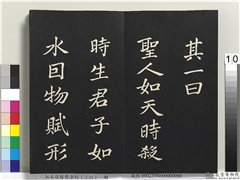 其一曰
聖人如天時殺
時生君子如
水因物賦形
10